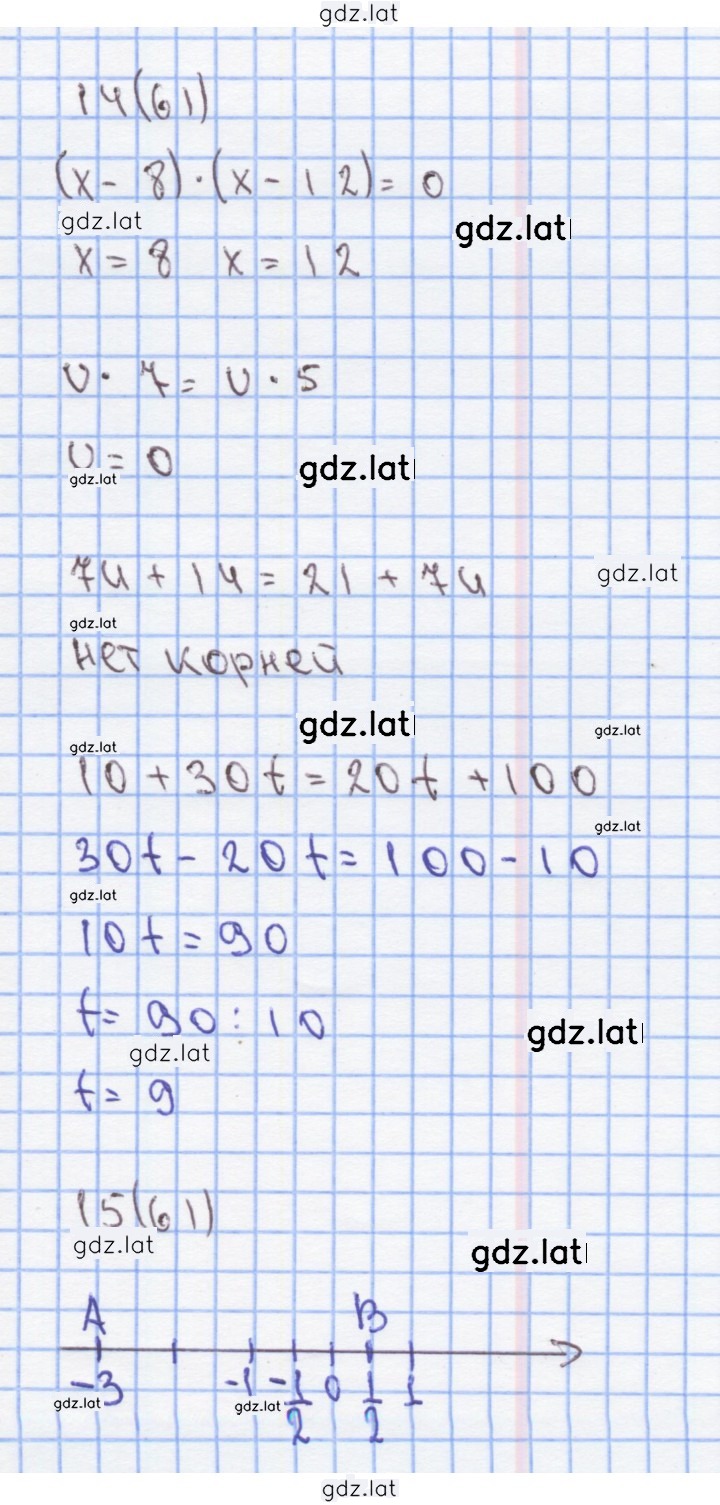 gdz.lat
14(61)
(x - 8) · (x - 12) = 0
gdz.lat gdz.lat
x = 8 x = 12
υ · 7 = υ · 5
υ = 0
gdz.lat gdz.lat
7u + 14 = 21 + 7u
gdz.lat
gdz.lat
нет корней
gdz.lat gdz.lat
gdz.lat
10 + 30t = 20t + 100
gdz.lat
30t - 20t = 100 - 10
gdz.lat
10t = 90
t = 90 : 10
gdz.lat
gdz.lat
t = 9
15(61)
gdz.lat gdz.lat
A B
-3 -1 -1/2 0 1/2 1
gdz.lat gdz.lat
gdz.lat